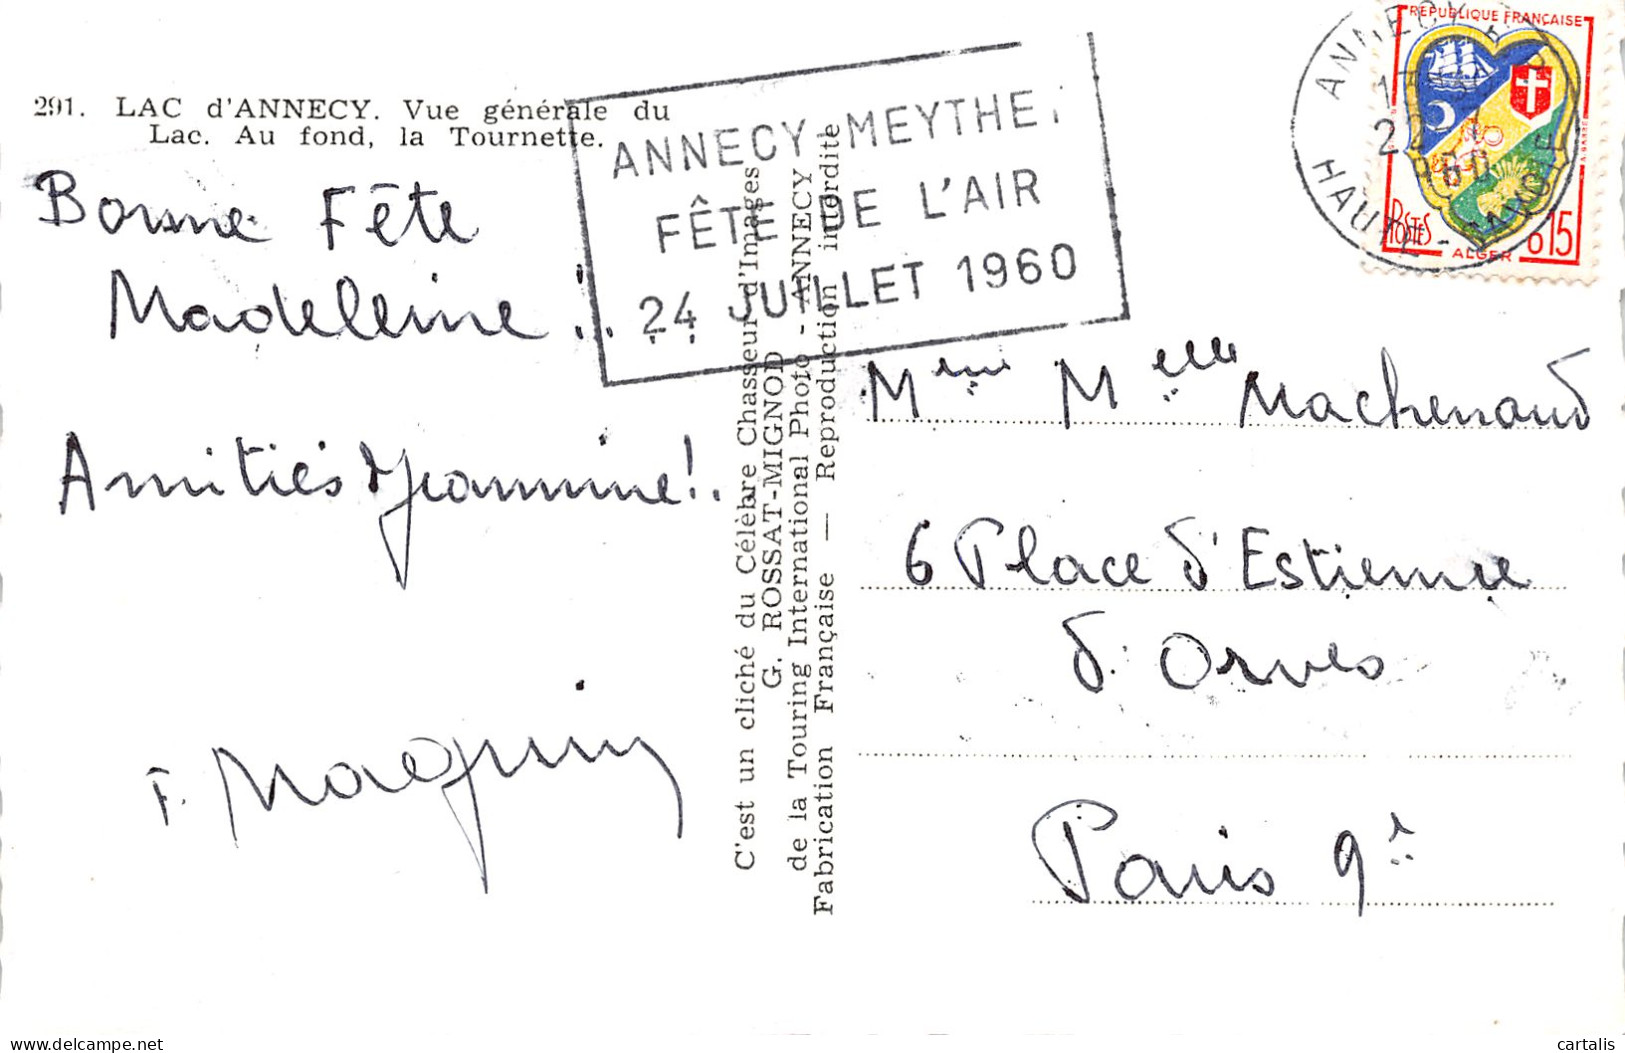 291. LAC d'ANNECY. Vue générale du
Lac. Au fond, la Tournette.
Bonne Fête
Madeleine !..
Amitiés Jeannine !.
F. Maquin
ANNECY-MEYTHET
FÊTE DE L'AIR
24 JUILLET 1960
C'est un cliché du Célèbre Chasseur d'Images
G. ROSSAT-MIGNOD
de la Touring International Photo - ANNECY
Fabrication Française — Reproduction interdite
ANNECY
HAUTE-SAVOIE
REPUBLIQUE FRANÇAISE
POSTES
ALGER
0,15
Mme Melle Machenaud
6 Place d'Estienne
d'Orves
Paris 9è
cartalis